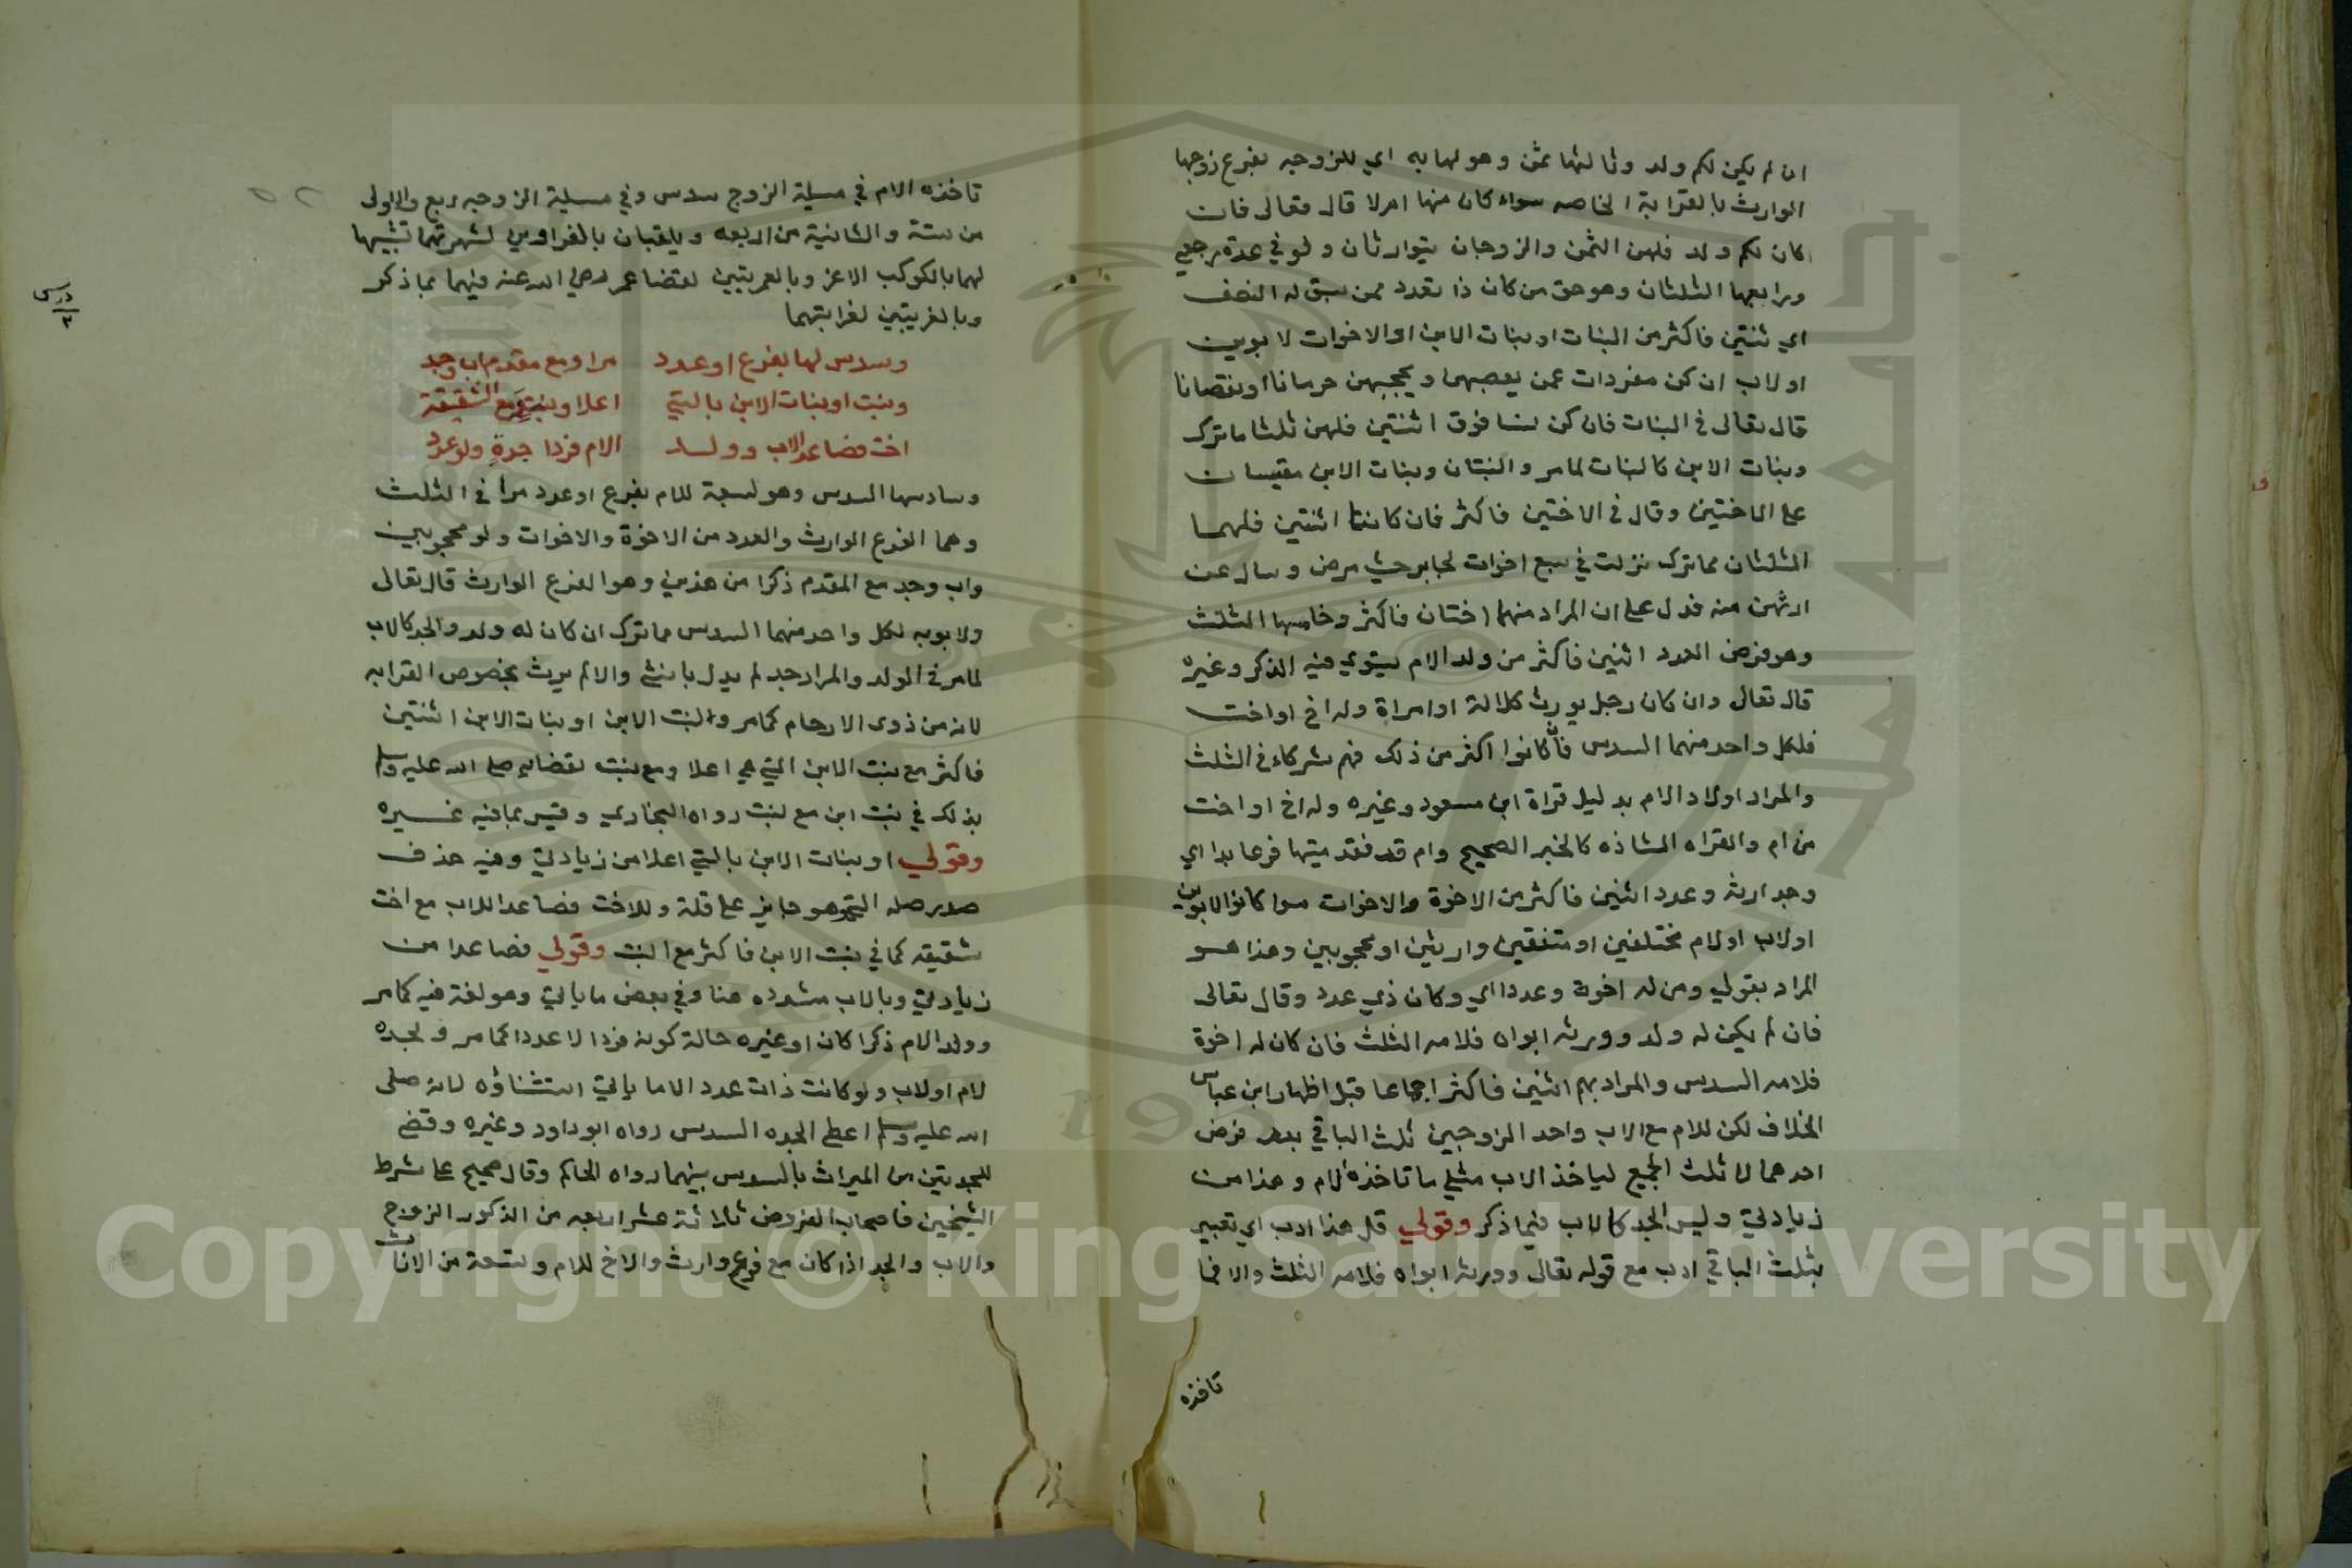 ان لم يكن لكم ولد وثالثها ثمن وهو لها به اي للزوجه بفرع زوجها
الوارث بالقرابة الخاصه سواء كان منها ام لا قال تعالى فان
كان لكم ولد فلهن الثمن والزوجان يتوارثان ولو في عدة رجعي
ورابعها الثلثان وهو حق من كان ذا تعدد ممن سبق له النصف
اي ثنتين فاكثر من البنات او بنات الابن او الاخوات لابوين
او لاب ان كن مفردات عمن يعصبهن ويحجبهن حرمانا او نقصانا
قال تعالى في البنات فان كن نسا فوق اثنتين فلهن ثلثا ما ترك
وبنات الابن كالبنات لما مر والبنتان وبنات الابن مقيسات
على الاختين وقال في الاختين فاكثر فان كانتا اثنتين فلهما
الثلثان مما ترك نزلت في سبع اخوات لجابر حيث مرض وسال عن
ارثهن منه فدل على ان المراد منهما اختان فاكثر وخامسها الثلث
وهو فرض العدد اثنين فاكثر من ولد الام يستوي فيه الذكر وغيره
قال تعالى وان كان رجل يورث كلالة او امراة وله اخ او اخت
فلكل واحد منهما السدس فان كانوا اكثر من ذلك فهم شركاء في الثلث
والمراد اولاد الام بدليل قراة ابن مسعود وغيره وله اخ او اخت
من ام والقراه الشاذه كالخبر الصحيح وام قد فقد ميتها فرعا بدا اي
وجد ارثه وعدد اثنين فاكثر من الاخوة والاخوات سوا كانوا لابوين
او لاب او لام مختلفين او متفقين وارثين او محجوبين وهذا هو
المراد بقولي ومن له اخوة وعددا اي وكان ذي عدد وقال تعالى
فان لم يكن له ولد وورثه ابواه فلامه الثلث فان كان له اخوة
فلامه السدس والمراد بهم اثنين فاكثر اجماعا قبل اظهار ابن عباس
الخلاف لكن للام مع الاب واحد الزوجين ثلث الباقي بعد فرض
احدهما لا ثلث الجميع لياخذ الاب مثلي ما تاخذه الام وهذا من
زيادتي وليس الجد كالاب فيما ذكر وقولي قل هذا ادب اي تعبير
بثلث الباقي ادب مع قوله تعالى وورثه ابواه فلامه الثلث والا فما
تاخذه
تاخذه الام في مسيلة الزوج سدس وفي مسيلة الزوجه ربع والاولى
من ستة والثانية من اربعه ويلقبان بالغراوين لشهرتهما تشبيها
لهما بالكوكب الاغر وبالعمريتين لقضا عمر رضي الله عنه فيهما بما ذكر
وبالغريبتين لغرابتهما
وسدس لها بفرع او عدد مرا ومع مقدم اب وجد
وبنت او بنات الابن بالتي اعلا وبنت ومع الشقيقة
اخت فصاعد الاب وولد الام فردا جدة ولو عدد
وسادسها السدس وهو لسبعة للام بفرع او عدد مرا في الثلث
وهما الفرع الوارث والعدد من الاخوة والاخوات ولو محجوبين
واب وجد مع المقدم ذكرا من هذين وهو الفرع الوارث قال تعالى
ولابويه لكل واحد منهما السدس مما ترك ان كان له ولد والجد كالاب
لما مر في الولد والمراد جد لم يدل بانثى والا لم يرث بخصوص القرابه
لانه من ذوى الارحام كما مر ولبنت الابن او بنات الابن اثنتين
فاكثر مع بنت الابن التي هي اعلا ومع بنت لقضائه صلى الله عليه وسلم
بذلك في بنت ابن مع بنت رواه البخاري وقيس بما فيه غيره
وقولي او بنات الابن بالتي اعلا من زيادتي وفيه حذف
صدر صلة التي وهو جايز على قلة وللاخت فصاعدا للاب مع اخت
شقيقه كما في بنت الابن فاكثر مع البنت وقولي فصاعدا من
زيادتي وبالاب مشدده هنا وفي بعض ما ياتي وهو لغة فيه كما مر
وولد الام ذكرا كان او غيره حالة كونه فردا لا عددا كما مر ولجده
لام او لاب ولو كانت ذات عدد الا ما ياتي استثناؤه لانه صلى
الله عليه وسلم اعطى الجده السدس رواه ابو داود وغيره وقضى
للجدتين من الميراث بالسدس بينهما رواه الحاكم وقال صحيح على شرط
الشيخين فاصحاب الفروض ثلاثة عشر اربعه من الذكور الزوج
والاب والجد اذا كان مع فرع وارث والاخ للام وتسعة من الاناث